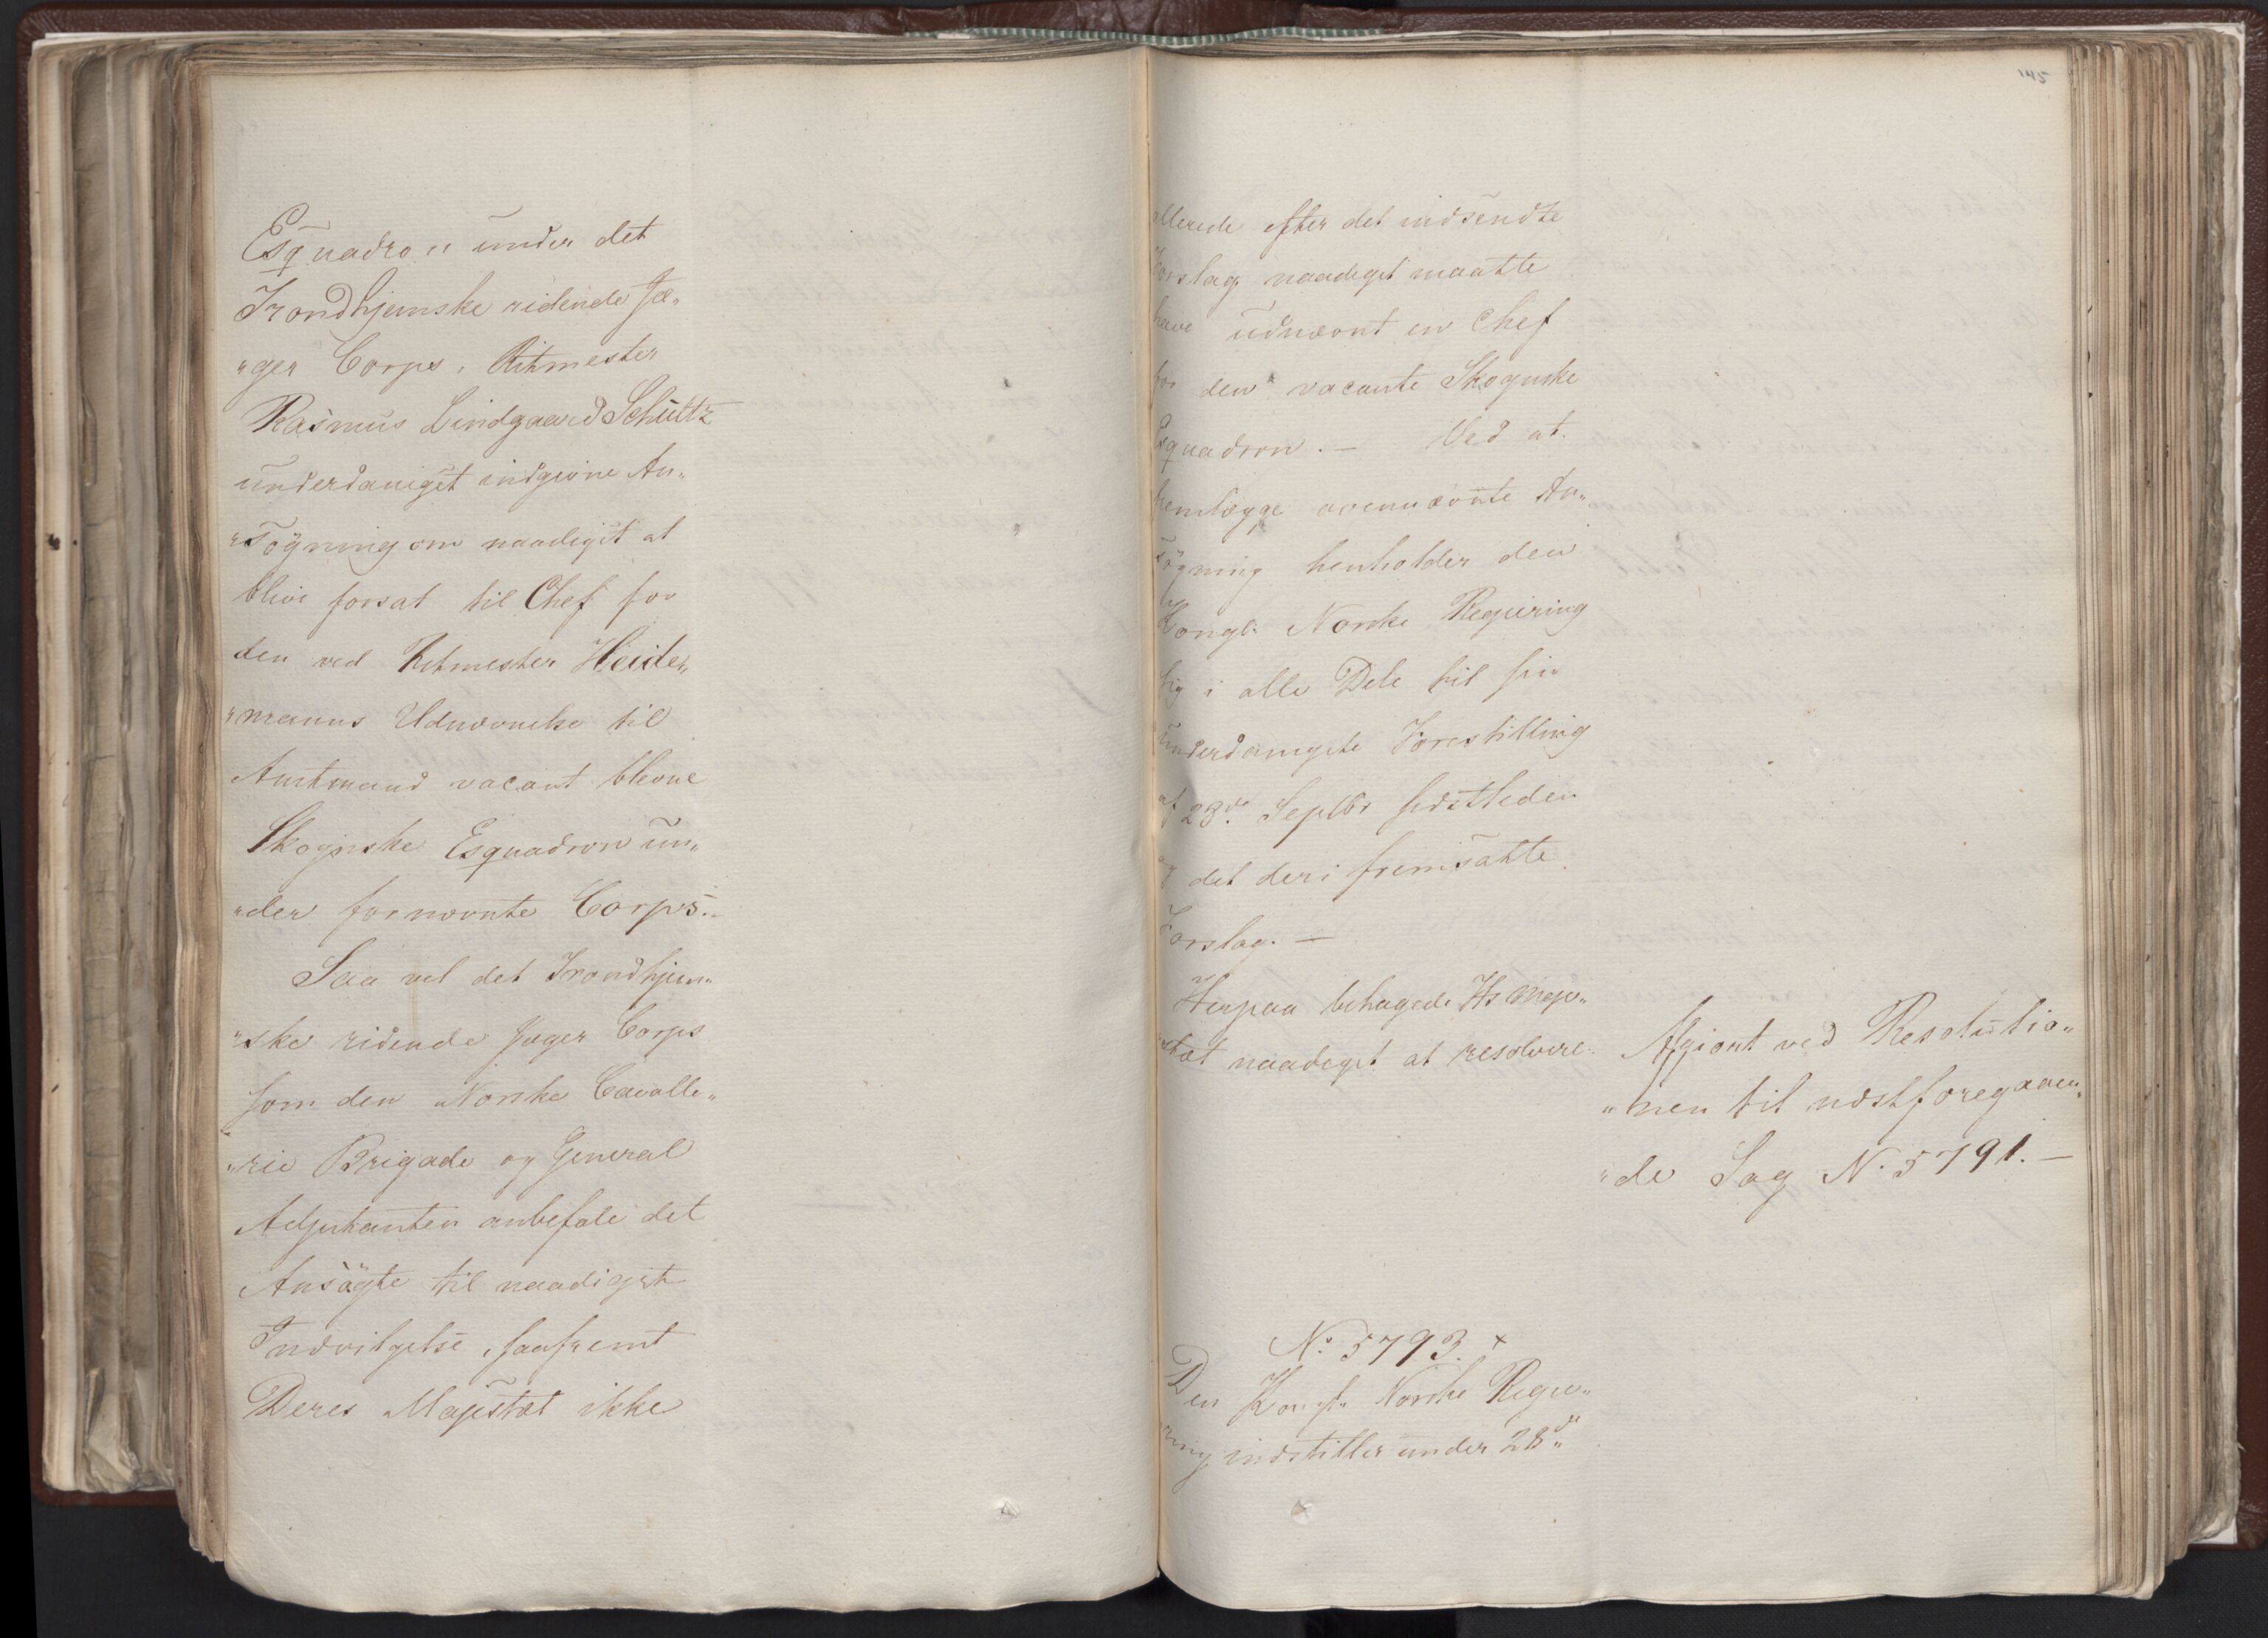 Esquadron under det
Trondhjemske ridende Jæ„
„ger Corps, Ritmester
Rasmus Lindgaard Schultz
underdanigst indgivne An„
„søgning om naadigst at
blive forsat til Chef for
den ved Ritmester Heider„
„manns Udnævnelse til
Amtmand vacant blevne
Skognske Esquadron un„
„der fornævnte Corps.–
Saa vel det Trondhjem„
„ske ridende Jæger Corps
som den Norske Cavalle„
„rie Brigade og General
Adjutanten anbefale det
Ansøgte til naadigst
Indvilgelse, saafremt
Deres Majestæt ikke
145
allerede efter det indsendte
Forslag naadigst maatte
have udnævnt en Chef
for den vacante Skognske
Esquadron. – Ved at
fremlægge ovennævnte An„
søgning henholder den
Kongl. Norske Regiering
sig i alle Dele til sin
underdanigste Forestilling
af 23de Septbr sidstleden
og det deri fremsatte
Forslag. –
Herpaa behagede Hs Maje„
„stæt naadigst at resolvere:
Afgiort ved Resolutio„
„nen til næstforegaaen„
„de Sag N. 5791. –
No 5793. +
Den Kongl. Norske Regie„
„ring indstiller under 28de